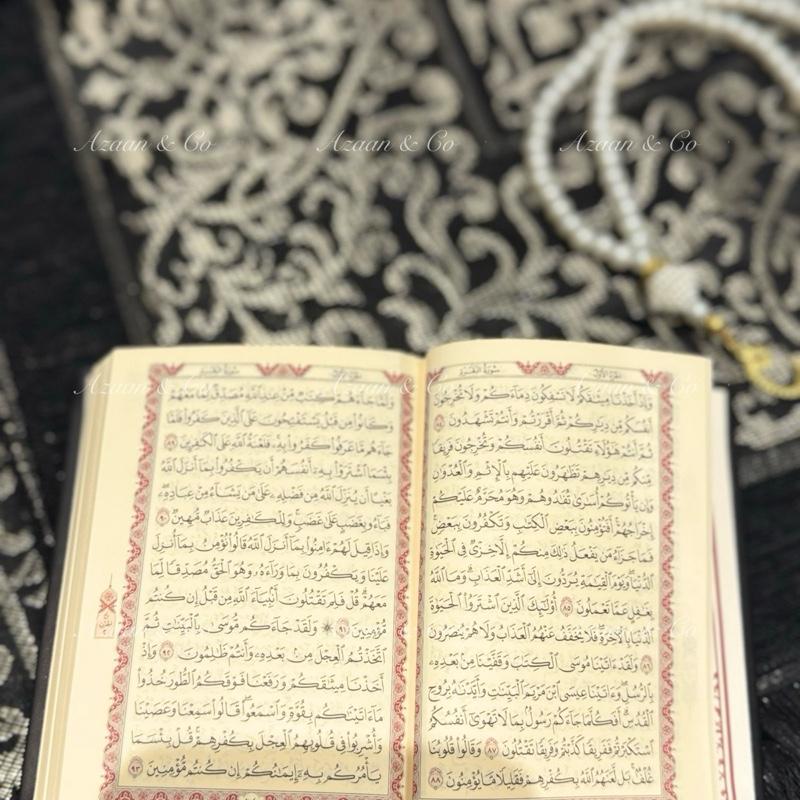 Azaan & Co Azaan & Co Azaan & Co
سُورَةُ البَقَرَةِ الجُزْءُ الأَوَّلُ
وَإِذْ أَخَذْنَا مِيثَٰقَكُمْ لَا تَسْفِكُونَ دِمَآءَكُمْ وَلَا تُخْرِجُونَ
أَنفُسَكُم مِّن دِيَٰرِكُمْ ثُمَّ أَقْرَرْتُمْ وَأَنتُمْ تَشْهَدُونَ ٨٤
ثُمَّ أَنتُمْ هَٰٓؤُلَآءِ تَقْتُلُونَ أَنفُسَكُمْ وَتُخْرِجُونَ فَرِيقًا
مِّنكُم مِّن دِيَٰرِهِمْ تَظَٰهَرُونَ عَلَيْهِم بِٱلْإِثْمِ وَٱلْعُدْوَٰنِ
وَإِن يَأْتُوكُمْ أُسَٰرَىٰ تُفَٰدُوهُمْ وَهُوَ مُحَرَّمٌ عَلَيْكُمْ
إِخْرَاجُهُمْ أَفَتُؤْمِنُونَ بِبَعْضِ ٱلْكِتَٰبِ وَتَكْفُرُونَ بِبَعْضٍ
فَمَا جَزَآءُ مَن يَفْعَلُ ذَٰلِكَ مِنكُمْ إِلَّا خِزْىٌ فِى ٱلْحَيَوٰةِ
ٱلدُّنْيَا وَيَوْمَ ٱلْقِيَٰمَةِ يُرَدُّونَ إِلَىٰٓ أَشَدِّ ٱلْعَذَابِ وَمَا ٱللَّهُ
بِغَٰفِلٍ عَمَّا تَعْمَلُونَ ٨٥ أُو۟لَٰٓئِكَ ٱلَّذِينَ ٱشْتَرَوُا۟ ٱلْحَيَوٰةَ
ٱلدُّنْيَا بِٱلْءَاخِرَةِ فَلَا يُخَفَّفُ عَنْهُمُ ٱلْعَذَابُ وَلَا هُمْ يُنصَرُونَ
٨٦ وَلَقَدْ ءَاتَيْنَا مُوسَى ٱلْكِتَٰبَ وَقَفَّيْنَا مِنۢ بَعْدِهِۦ
بِٱلرُّسُلِ وَءَاتَيْنَا عِيسَى ٱبْنَ مَرْيَمَ ٱلْبَيِّنَٰتِ وَأَيَّدْنَٰهُ بِرُوحِ
ٱلْقُدُسِ أَفَكُلَّمَا جَآءَكُمْ رَسُولٌۢ بِمَا لَا تَهْوَىٰٓ أَنفُسُكُمُ
ٱسْتَكْبَرْتُمْ فَفَرِيقًا كَذَّبْتُمْ وَفَرِيقًا تَقْتُلُونَ ٨٧ وَقَالُوا۟ قُلُوبُنَا
غُلْفٌۢ بَل لَّعَنَهُمُ ٱللَّهُ بِكُفْرِهِمْ فَقَلِيلًا مَّا يُؤْمِنُونَ ٨٨
الجُزْءُ الأَوَّلُ سُورَةُ البَقَرَةِ
وَلَمَّا جَآءَهُمْ كِتَٰبٌ مِّنْ عِندِ ٱللَّهِ مُصَدِّقٌ لِّمَا مَعَهُمْ
وَكَانُوا۟ مِن قَبْلُ يَسْتَفْتِحُونَ عَلَى ٱلَّذِينَ كَفَرُوا۟ فَلَمَّا
جَآءَهُم مَّا عَرَفُوا۟ كَفَرُوا۟ بِهِۦ فَلَعْنَةُ ٱللَّهِ عَلَى ٱلْكَٰفِرِينَ ٨٩
بِئْسَمَا ٱشْتَرَوْا۟ بِهِۦٓ أَنفُسَهُمْ أَن يَكْفُرُوا۟ بِمَآ أَنزَلَ ٱللَّهُ
بَغْيًا أَن يُنَزِّلَ ٱللَّهُ مِن فَضْلِهِۦ عَلَىٰ مَن يَشَآءُ مِنْ عِبَادِهِۦ
فَبَآءُو بِغَضَبٍ عَلَىٰ غَضَبٍ وَلِلْكَٰفِرِينَ عَذَابٌ مُّهِينٌ ٩٠
وَإِذَا قِيلَ لَهُمْ ءَامِنُوا۟ بِمَآ أَنزَلَ ٱللَّهُ قَالُوا۟ نُؤْمِنُ بِمَآ أُنزِلَ
عَلَيْنَا وَيَكْفُرُونَ بِمَا وَرَآءَهُۥ وَهُوَ ٱلْحَقُّ مُصَدِّقًا لِّمَا
مَعَهُمْ قُلْ فَلِمَ تَقْتُلُونَ أَنۢبِيَآءَ ٱللَّهِ مِن قَبْلُ إِن كُنتُم
مُّؤْمِنِينَ ٩١ ۞ وَلَقَدْ جَآءَكُم مُّوسَىٰ بِٱلْبَيِّنَٰتِ ثُمَّ
ٱتَّخَذْتُمُ ٱلْعِجْلَ مِنۢ بَعْدِهِۦ وَأَنتُمْ ظَٰلِمُونَ ٩٢ وَإِذْ
أَخَذْنَا مِيثَٰقَكُمْ وَرَفَعْنَا فَوْقَكُمُ ٱلطُّورَ خُذُوا۟
مَآ ءَاتَيْنَٰكُم بِقُوَّةٍ وَٱسْمَعُوا۟ قَالُوا۟ سَمِعْنَا وَعَصَيْنَا
وَأُشْرِبُوا۟ فِى قُلُوبِهِمُ ٱلْعِجْلَ بِكُفْرِهِمْ قُلْ بِئْسَمَا
يَأْمُرُكُم بِهِۦٓ إِيمَٰنُكُمْ إِن كُنتُم مُّؤْمِنِينَ ٩٣